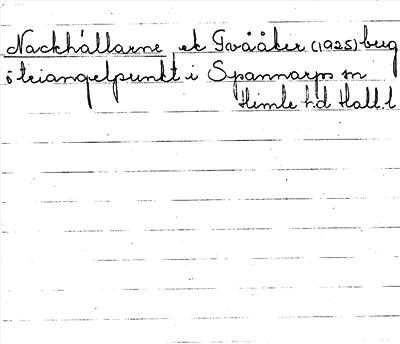 Nackhällarne ek Tvååker (1925) berg
o triangelpunkt i Spannarps sn
Himle hd Hall. l